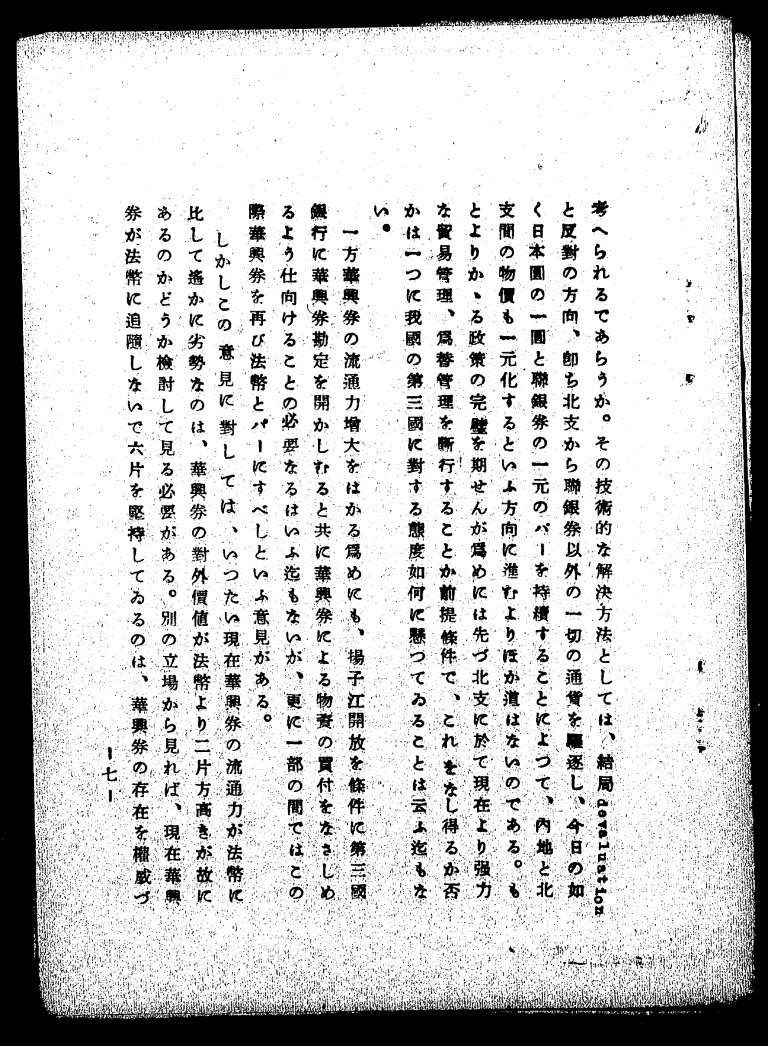 考へられるであらうか。その技術的な解決方法としては、結局devaluation
と反對の方向、卽ち北支から聯銀券以外の一切の通貨を驅逐し、今日の如
く日本圓の一圓と聯銀券の一元のパーを持續することによつて、內地と北
支間の物價も一元化するといふ方向に進むよりほか道はないのである。も
とよりかゝる政策の完璧を期せんが爲めには先づ北支に於て現在より强力
な貿易管理、爲替管理を斷行することが前提條件で、これをなし得るか否
かは一つに我國の第三國に對する態度如何に懸つてゐることは云ふ迄もな
い。
一方華興券の流通力增大をはかる爲めにも、揚子江開放を條件に第三國
銀行に華興券勘定を開かしむると共に華興券による物資の買付をなさしめ
るよう仕向けることの必要なるはいふ迄もないが、更に一部の間ではこの
際華興券を再び法幣とパーにすべしといふ意見がある。
しかしこの意見に對しては、いつたい現在華興券の流通力が法幣に
比して遙かに劣勢なのは、華興券の對外價値が法幣より二片方高きが故に
あるのかどうか檢討して見る必要がある。別の立場から見れば、現在華興
券が法幣に追隨しないで六片を堅持してゐるのは、華興券の存在を權威づ
ー七ー